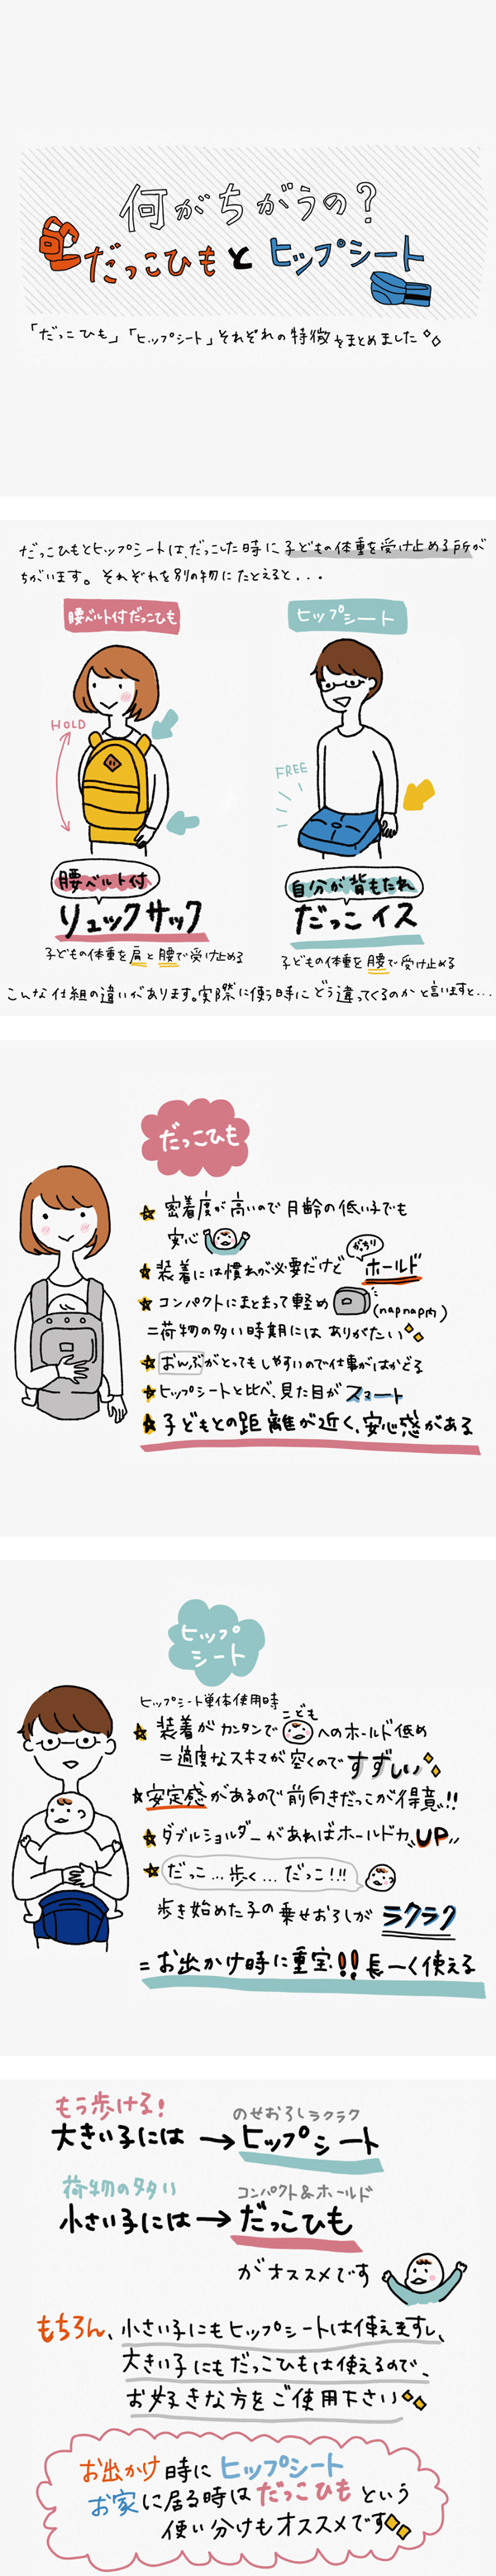 何がちがうの?
だっこひもとヒップシート
「だっこひも」「ヒップシート」それぞれの特徴をまとめました
だっこひもとヒップシートは、だっこした時に子どもの体重を受け止める所が
ちがいます。それぞれを別の物にたとえると...
腰ベルト付だっこひも
HOLD
腰ベルト付
リュックサック
子どもの体重を肩と腰で受け止める
ヒップシート
FREE
自分が背もたれ
だっこイス
子どもの体重を腰で受け止める
こんな仕組の違いがあります。実際に使う時にどう違ってくるのかと言いますと...
だっこひも
密着度が高いので月齢の低い子でも
安心
装着には慣れが必要だけど がっちり ホールド
コンパクトにまとまって軽め (napnap内)
=荷物の多い時期にはありがたい
おんぶがとってもしやすいので仕事がはかどる
ヒップシートと比べ、見た目がスマート
子どもとの距離が近く、安心感がある
ヒップ
シート
ヒップシート単体使用時
装着がカンタンで こども へのホールド低め
=適度なスキマが空くのですずしい
安定感があるので前向きだっこが得意!!
ダブルショルダーがあればホールド力UP
だっこ...歩く...だっこ!!!
歩き始めた子の乗せおろしがラクラク
=お出かけ時に重宝!!長ーく使える
もう歩ける!
大きい子には→
のせおろしラクラク
ヒップシート
荷物の多い
小さい子には→
コンパクト&ホールド
だっこひも
がオススメです
もちろん、小さい子にもヒップシートは使えますし、
大きい子にもだっこひもは使えるので、
お好きな方をご使用下さい
お出かけ時にヒップシート
お家に居る時はだっこひもという
使い分けもオススメです